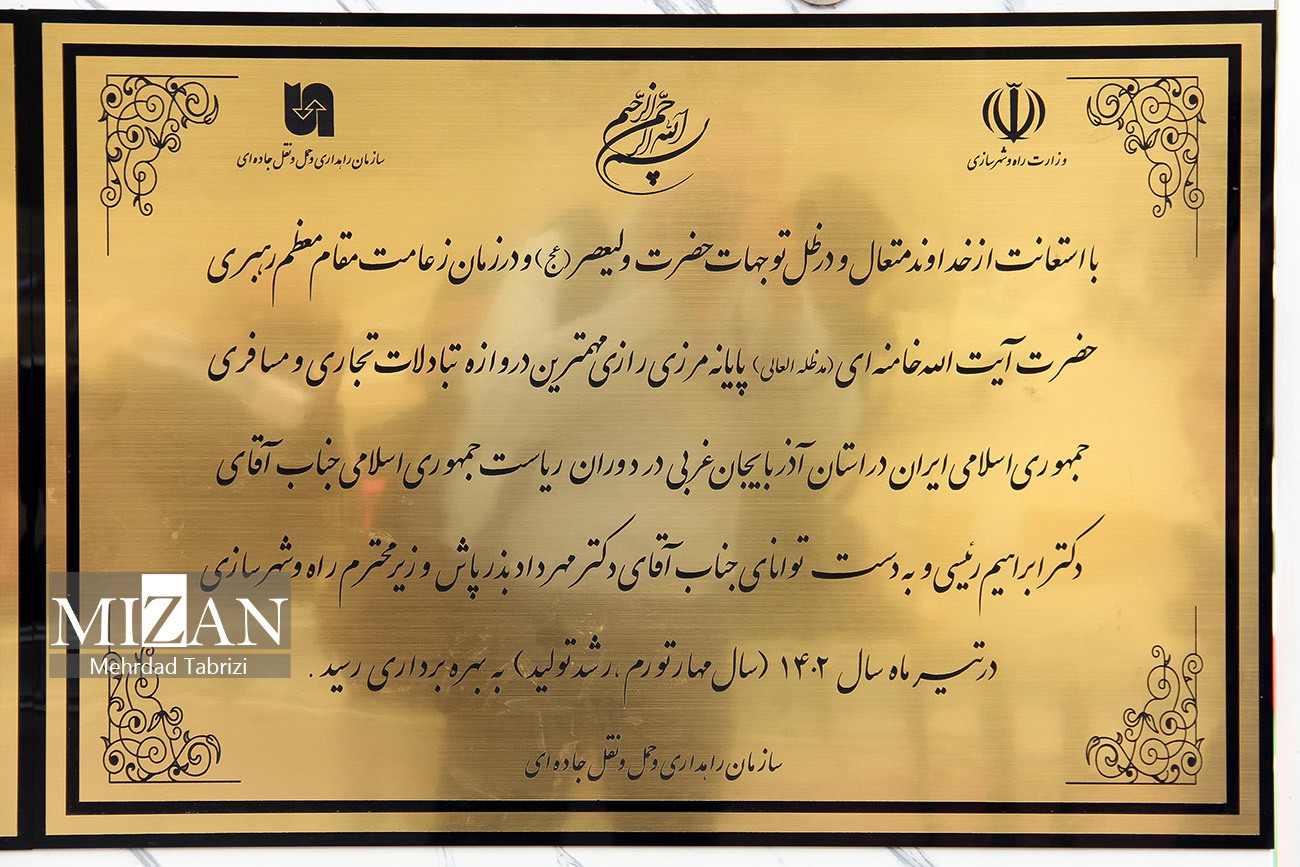 بسم الله الرحمن الرحیم
وزارت راه و شهرسازی
سازمان راهداری و حمل و نقل جاده ای
با استعانت از خداوند متعال و در ظل توجهات حضرت ولیعصر (عج) و در زمان زعامت مقام معظم رهبری
حضرت آیت الله خامنه ای (مدظله العالی) پایانه مرزی رازی مهمترین دروازه تبادلات تجاری و مسافری
جمهوری اسلامی ایران در استان آذربایجان غربی در دوران ریاست جمهوری اسلامی جناب آقای
دکتر ابراهیم رئیسی و به دست توانای جناب آقای دکتر مهرداد بذرپاش وزیر محترم راه و شهرسازی
در تیر ماه سال ۱۴۰۲ (سال مهار تورم ، رشد تولید) به بهره برداری رسید .
سازمان راهداری و حمل و نقل جاده ای
MIZAN
Mehrdad Tabrizi